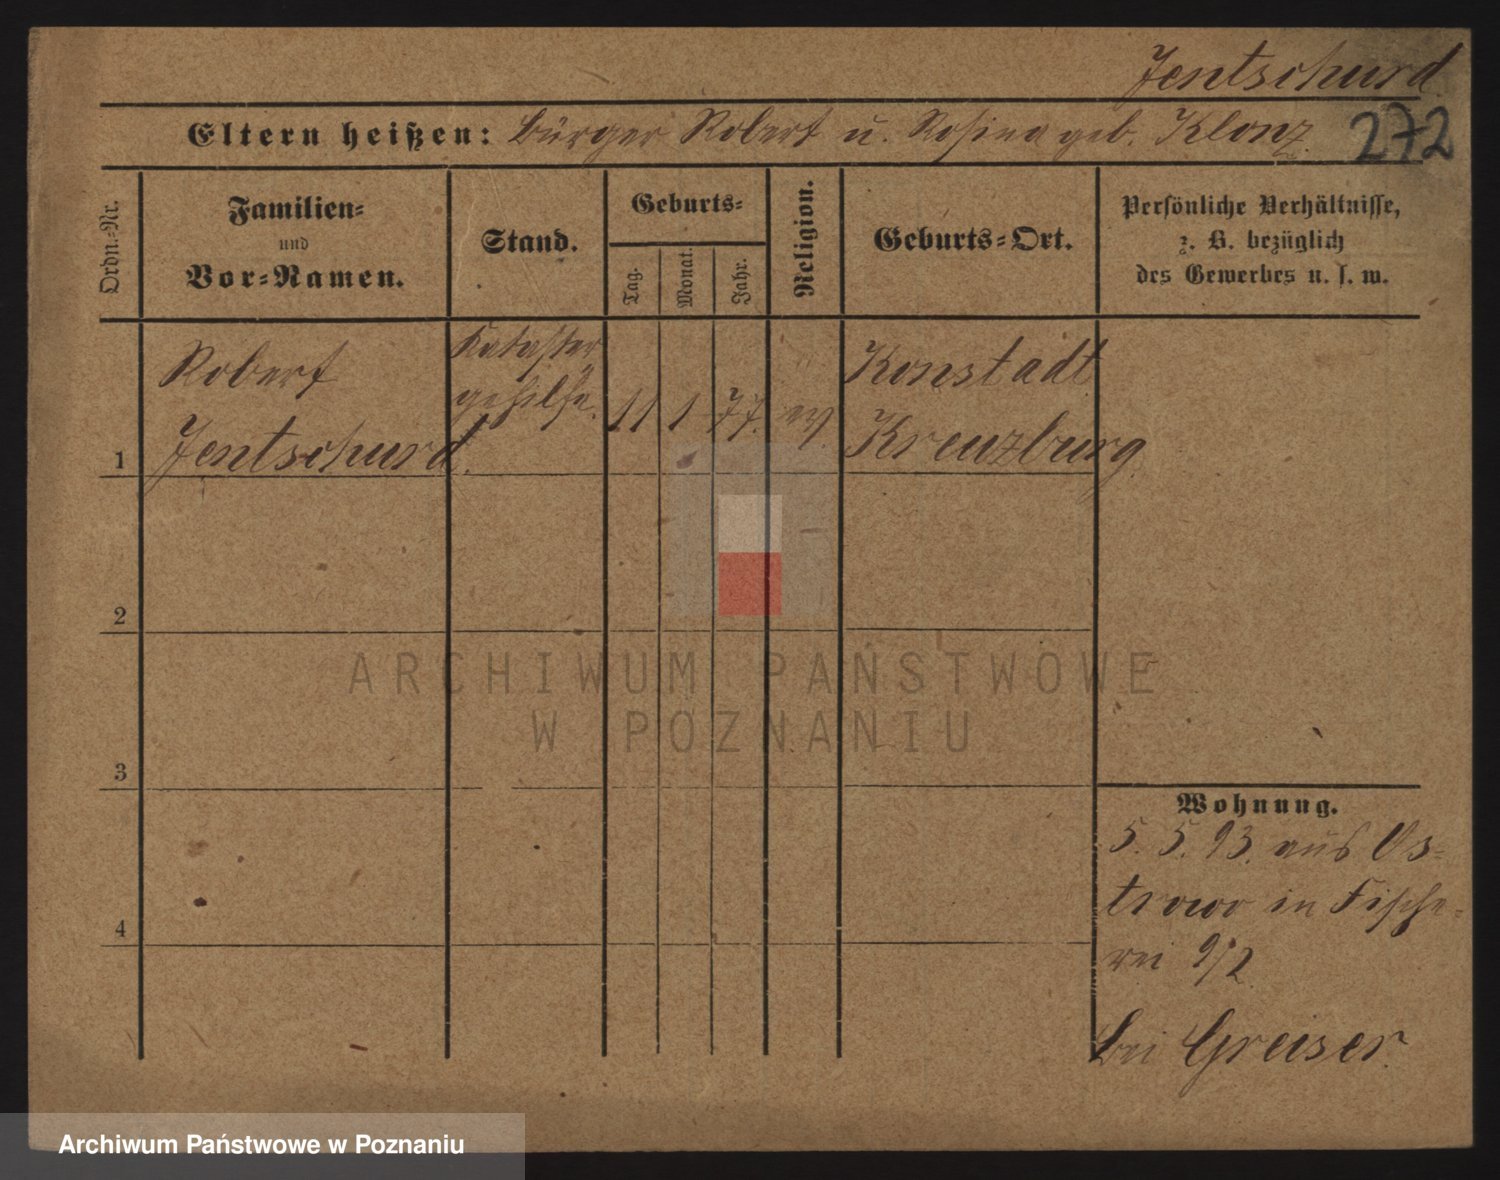 Jentschurd.
Eltern heißen: Bürger Robert u. Rosina geb. Klonz.
272
Ordn.-Nr.
Familien-
und
Vor-Namen.
Stand.
Geburts-
Tag.
Monat.
Jahr.
Religion.
Geburts-Ort.
Persönliche Verhältnisse,
z. B. bezüglich
des Gewerbes u. s. w.
1
Robert
Jentschurd.
Kataster
gehilfe.
11
1
77.
ev.
Konstadt
Kreuzburg
2
3
4
Wohnung.
5. 5. 93. aus Os-
trowo in Fische-
rei 9/2
bei Greiser.
ARCHIWUM PAŃSTWOWE
W POZNANIU
Archiwum Państwowe w Poznaniu